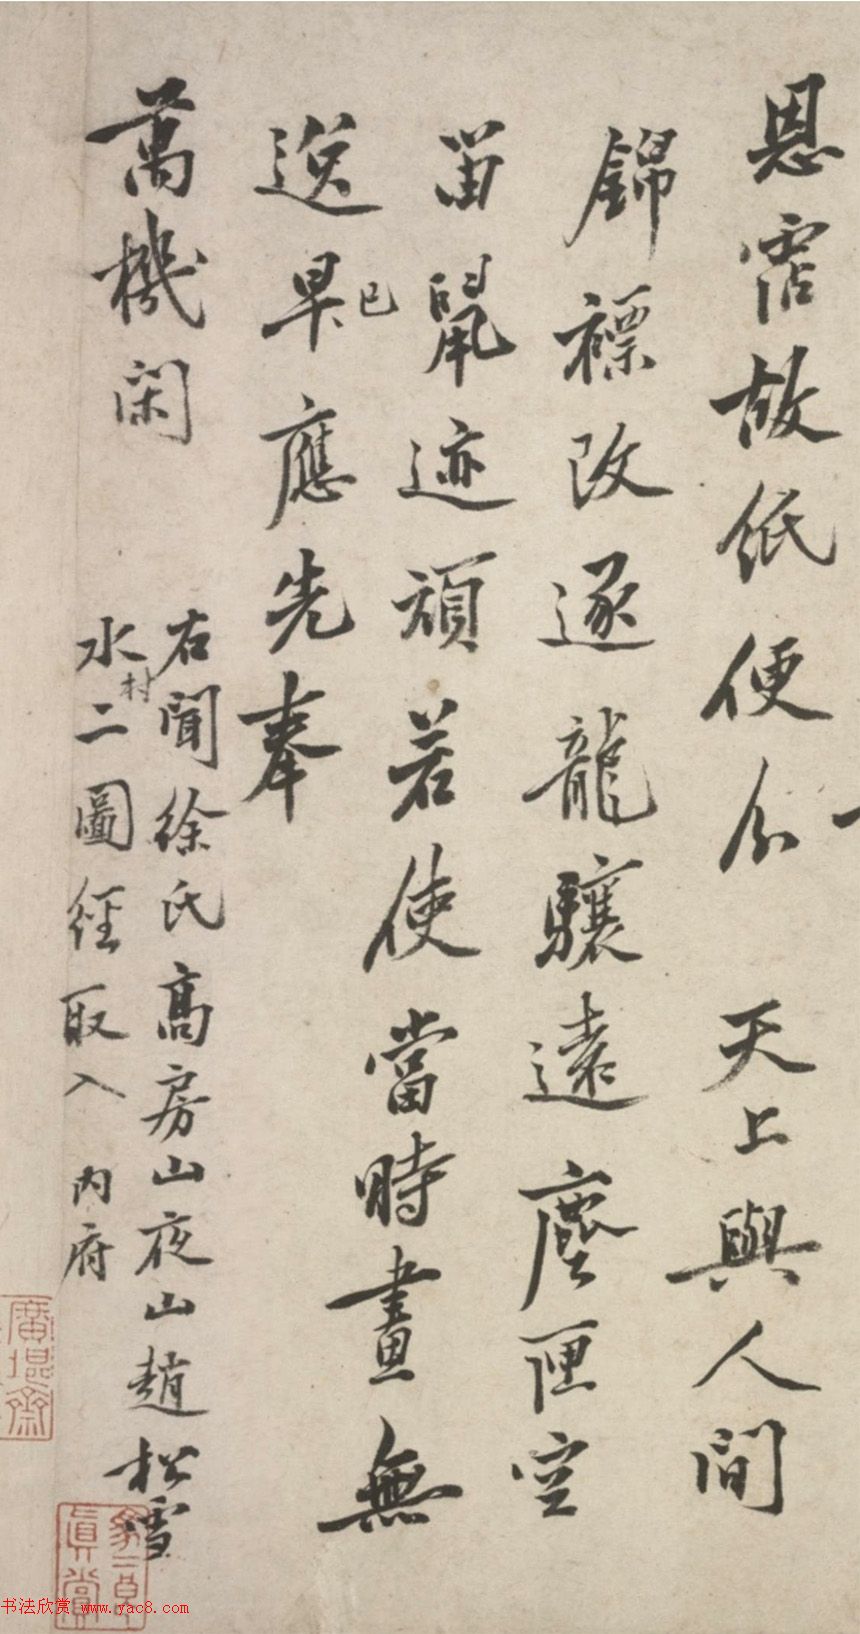 恩霑故紙便分天上與人間
錦褾改逐龍驤遠塵匣空
留鼠迹頑若使當時畫無
逸早已應先奉
萬機閑
右聞徐氏高房山夜山趙松雪
水村二圖經取入内府
廣堪齋
真賞
书法欣赏 www.yac8.com